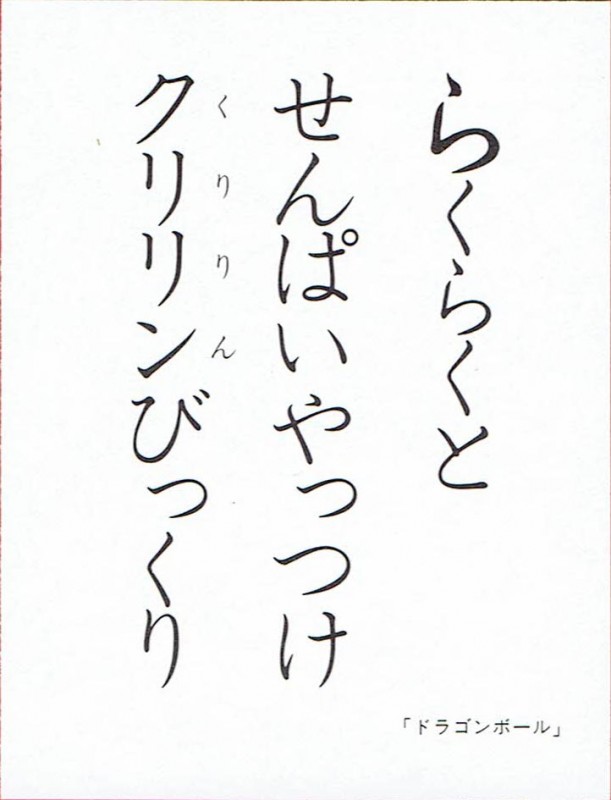 らくらくと
せんぱいやっつけ
クリリンびっくり
くりりん
「ドラゴンボール」